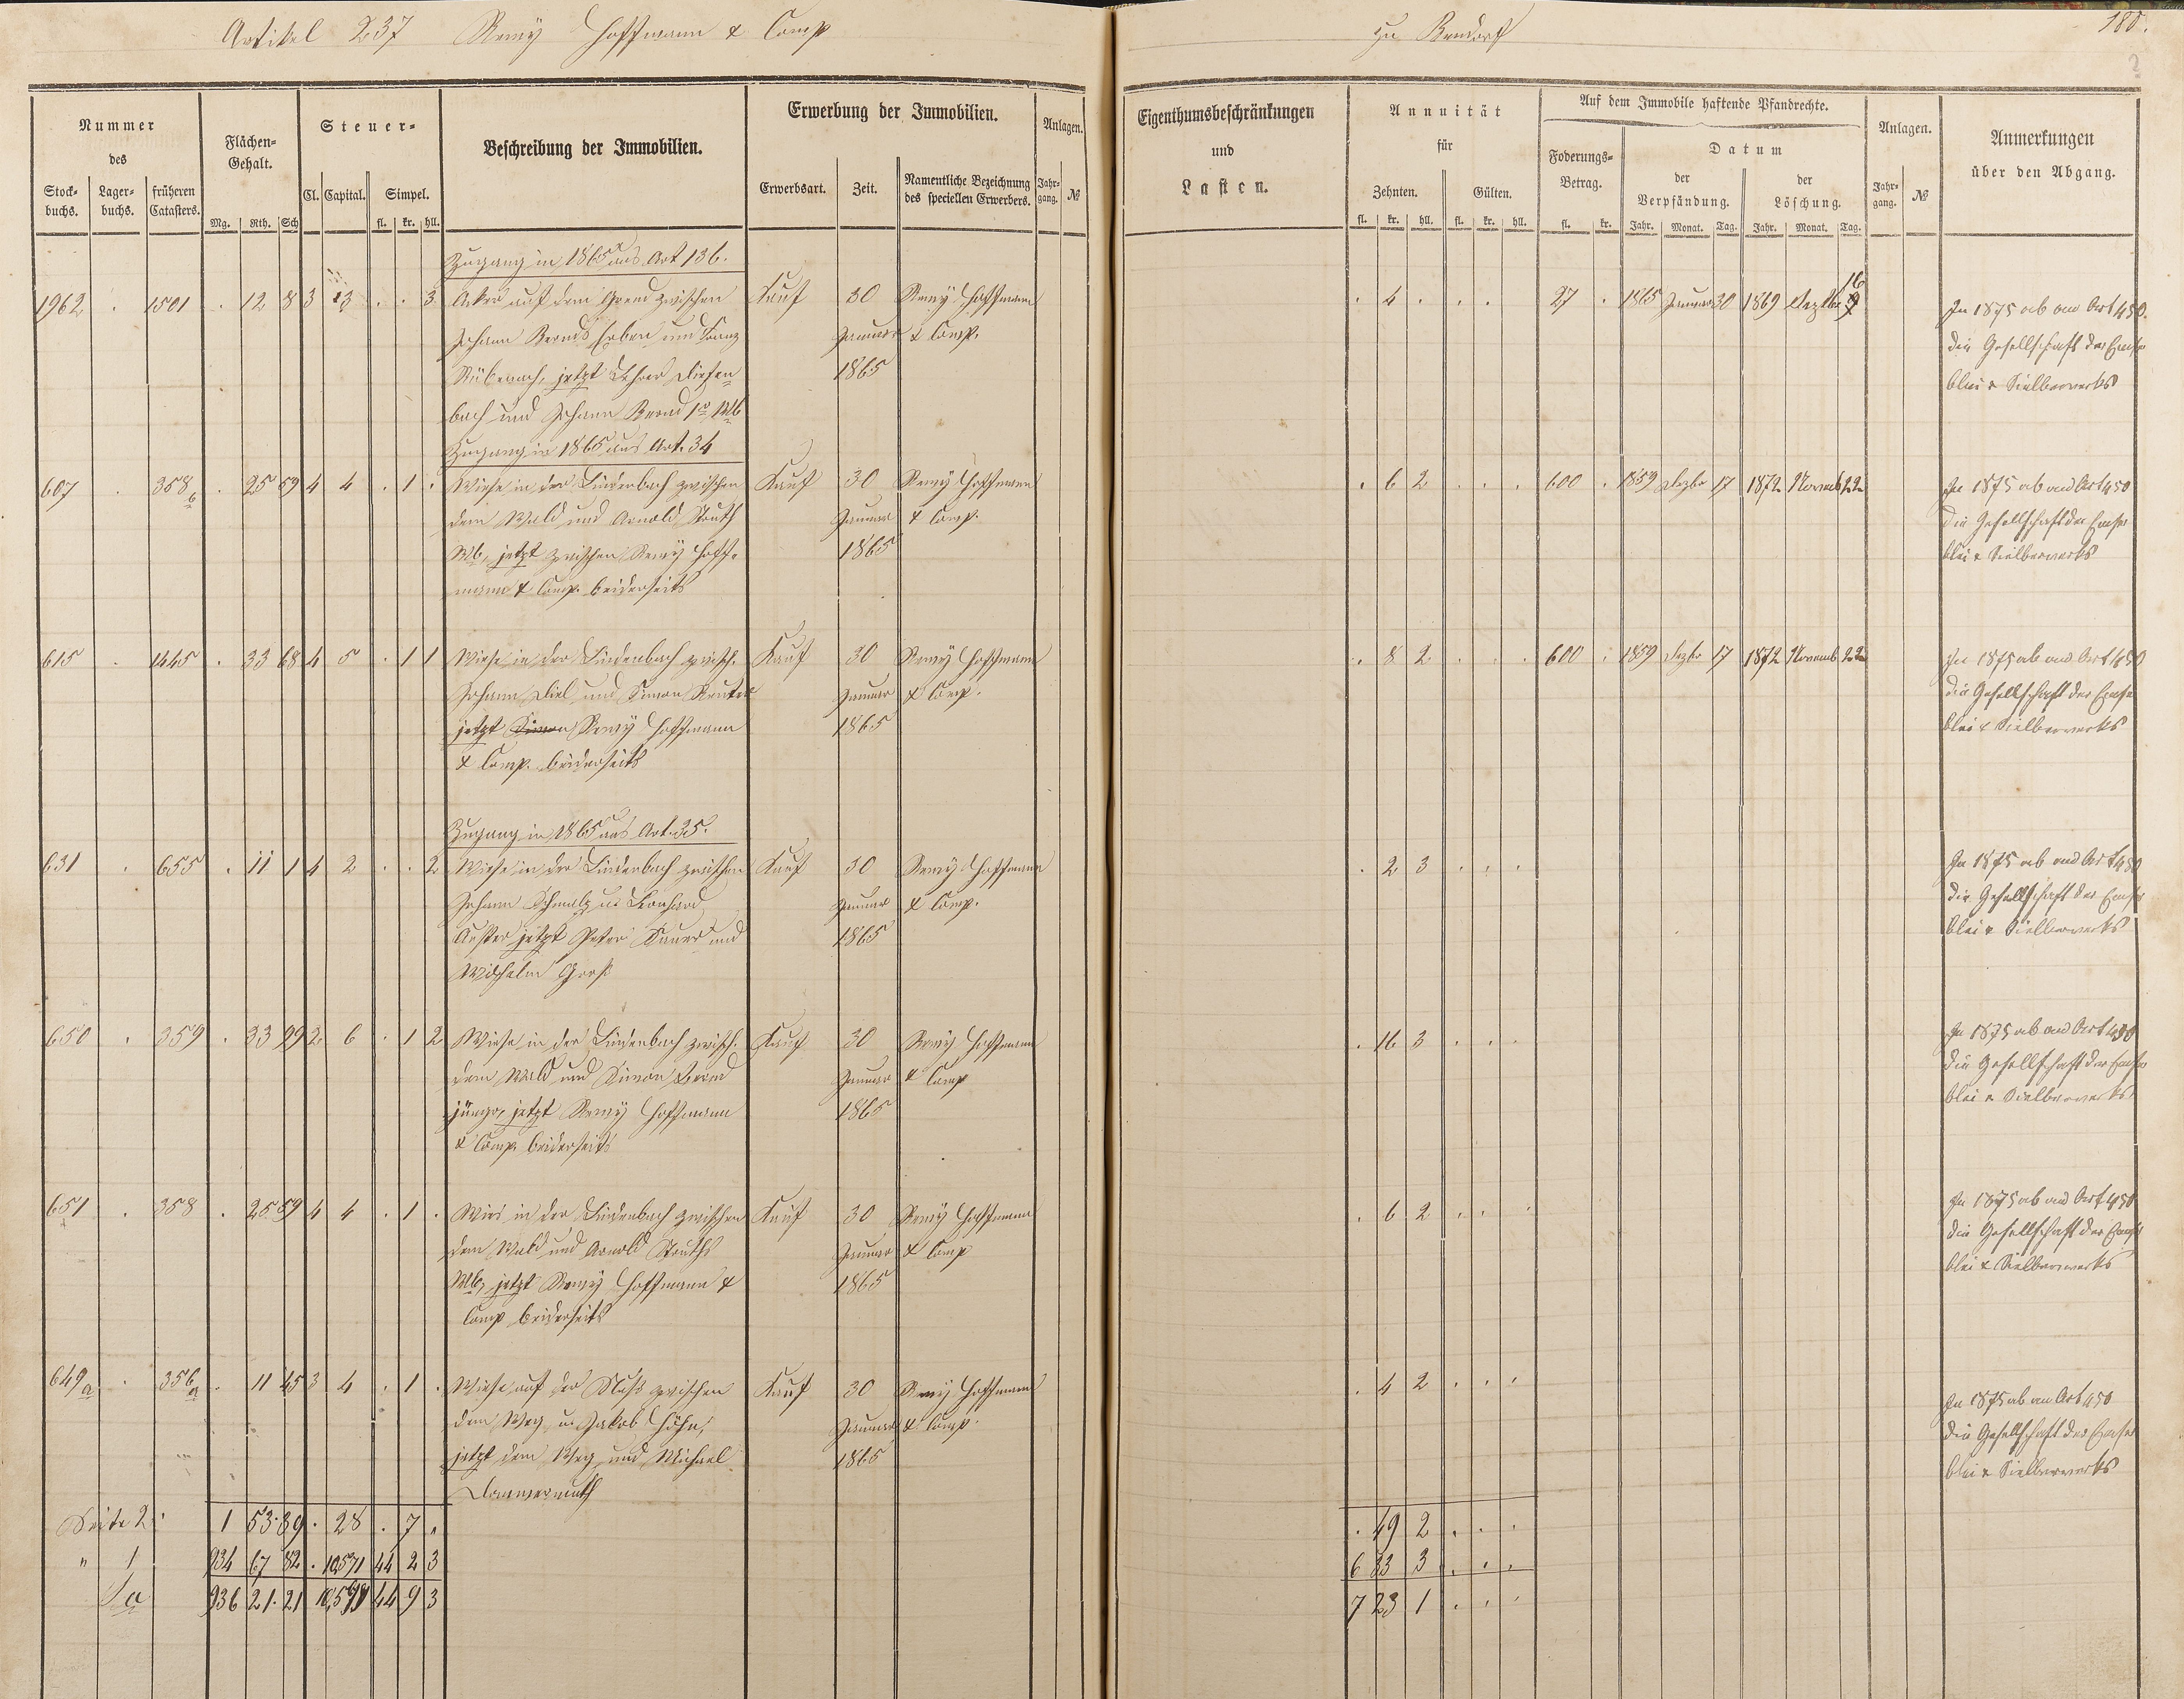 Artikel 237 Remy Hoffmann & Comp zu Bendorf 180.
2
Nummer des
Stock-buchs. Lager-buchs. früheren Catasters.
Flächen-Gehalt.
Mg. Rth. Sch
Steuer-
Cl. Capital. Simpel.
fl. kr. hll.
Beschreibung der Immobilien.
Erwerbung der Immobilien.
Erwerbsart. Zeit. Namentliche Bezeichnung des speciellen Erwerbers.
Anlagen.
Jahr-gang. №
Eigenthumsbeschränkungen
und
Lasten.
Annuität
für
Zehnten. Gülten.
fl. kr. hll. fl. kr. hll.
Auf dem Immobile haftende Pfandrechte.
Foderungs-Betrag.
fl. kr.
Datum
der Verpfändung. der Löschung.
Jahr. Monat. Tag. Jahr. Monat. Tag.
Anlagen.
Jahr-gang. №
Anmerkungen
über den Abgang.
Zugang in 1865 aus Art 136.
1962 . 1501 . 12 8 3 3 . . 3 Acker auf dem zwischen Kauf 30 Remy Hoffmann . 4 . . . 27 . 1865 Januar 30 1869 Dezbr 16 In 1875 ab an Art 450.
Johann Bernds Erben und Franz Januar & Comp. die Gesellschaft des Emser
Rübenach, jetzt Lehrer Diefen 1865 Blei & Silberwerks
bach und Johann Bernd 1r Wb
Zugang in 1865 aus Art. 34
607 . 358 b . 25 59 4 4 . 1 . Wiese in der Lindenbach zwischen Kauf 30 Remy Hoffmann . 6 2 . . . 600 . 1859 Dezbr 17 1872 Novemb 22 In 1875 ab an Art 450
dem Wald und Arnold Struth Januar & Comp. die Gesellschaft des Emser
Wb, jetzt zwischen Remy Hoff- 1865 Blei & Silberwerks
mann & Comp. beiderseits
615 . 1445 . 33 68 4 5 . 1 1 Wiese in der Lindenbach zwisch. Kauf 30 Remy Hoffmann . 8 2 . . . 600 . 1859 Dezbr 17 1872 Novemb 22 In 1875 ab an Art 450
Johann Diel und Simon Reuter Januar & Comp. die Gesellschaft des Emser
jetzt Simon Remy Hoffmann 1865 Blei & Silberwerks
& Comp. beiderseits
Zugang in 1865 aus Art. 35.
631 . 655 . 11 1 4 2 . . 2 Wiese in der Lindenbach zwischen Kauf 30 Remy Hoffmann . 2 3 . . . In 1875 ab an Art 450
Johann Schmalz u. Leonhard Januar & Comp. die Gesellschaft des Emser
jetzt Peter Sauer und 1865 Blei & Silberwerks
Wilhelm Groß
650 . 359 . 33 99 2 6 . 1 2 Wiese in der Lindenbach zwisch. Kauf 30 Remy Hoffmann . 16 3 . . . In 1875 ab an Art 450
dem Wald und Simon Bernd Januar & Comp die Gesellschaft des Emser
jünger, jetzt Remy Hoffmann 1865 Blei & Silberwerks
& Comp. beiderseits
651 . 358 . 25 59 4 4 . 1 . Wies in der Lindenbach zwischen Kauf 30 Remy Hoffmann . 6 2 . . . In 1875 ab an Art 450
dem Wald und Arnold Struths Januar & Comp die Gesellschaft des Emser
Wb, jetzt Remy Hoffmann & 1865 Blei & Silberwerks
Comp beiderseits
649 a . 356 a . 11 45 3 4 . 1 . Wiese auf der zwischen Kauf 30 Remy Hoffmann . 4 2 . . . In 1875 ab an Art 450
dem Weg u. Jakob Höhn, Januar & Comp. die Gesellschaft des Emser
jetzt dem Weg und Michael 1865 Blei & Silberwerks
Dannermuth
Seite 2. 1 53 39 . 28 . 7 . . 49 2 . . .
" 1 934 67 82 . 10571 44 2 3 6 33 3 . . .
Sa 936 21 21 10,599 44 9 3 7 23 1 . . .